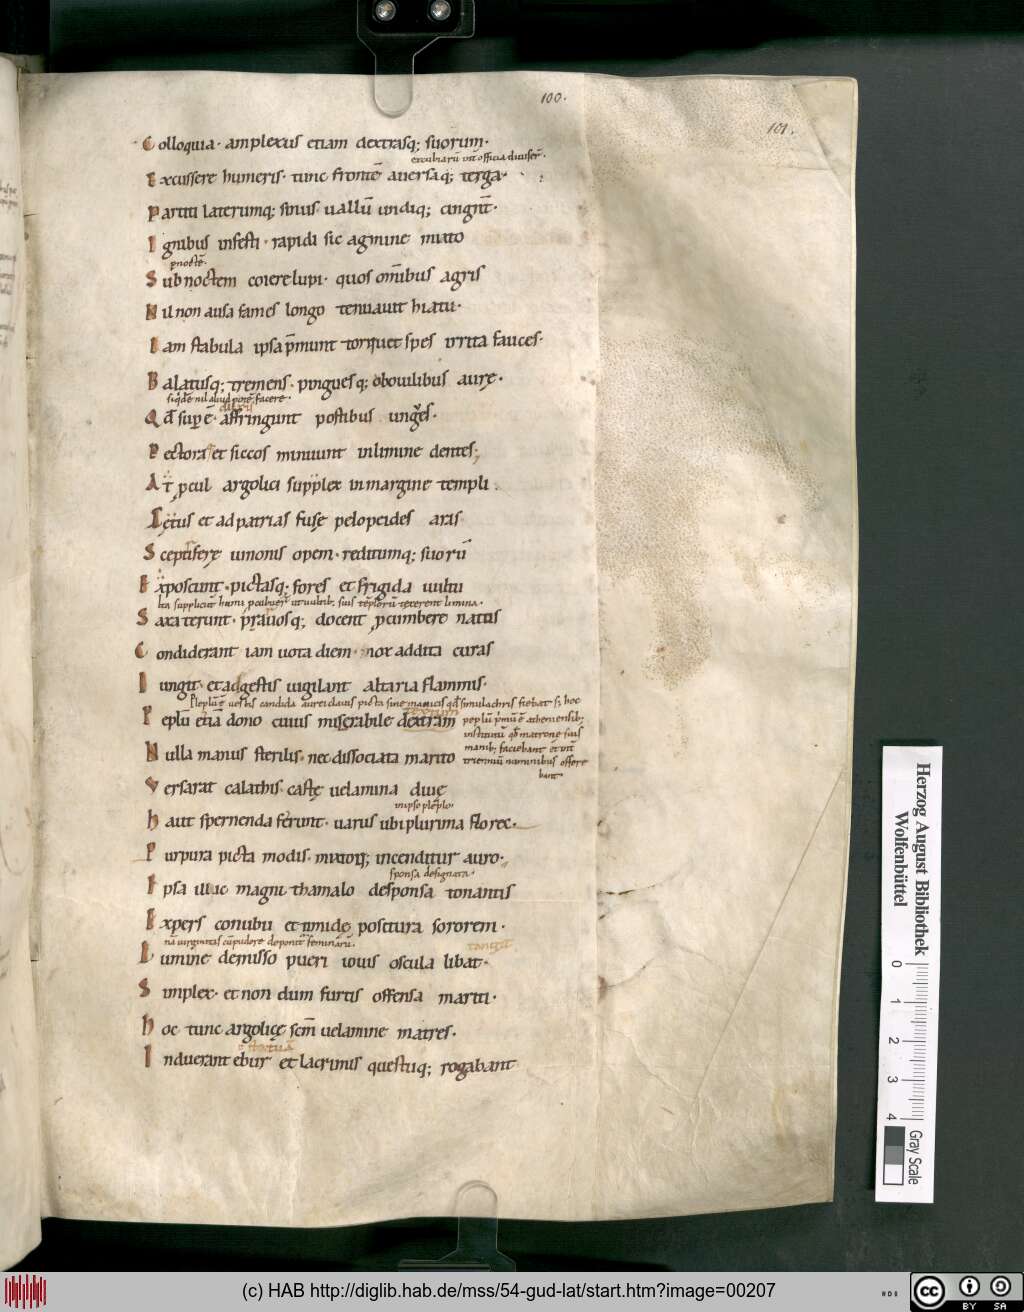 100.
101.
Colloquia· amplexus etiam dextrasq; suorum·
excubiarū vĺ officia diuiser̄·
Excussere humeris· tunc frontē auersaq; terga·
Partiti laterumq; sinus· uallū undiq; cingnt̄·
Ignibus infesti· rapidi sic agmine mixto
pnoctē·
Sub noctem coiere lupi· quos om̄ibus agris
Nil non ausa fames longo tenuauit hiatu·
Iam stabula ipsa p̄munt torquet spes irrita fauces·
Balatusq; tremens· pinguesq; obouilibus aurę·
siqdē nil aliud potē facere·
Qđ supē· affringunt postibus ungues·
Pectora et siccos minuunt inlimine dentes;
At ꝓcul argolici supplex inmargine templi
Cętus et adpatrias fusę pelopeides aris
Sceptriferę iunonis opem· reditumq; suorū
Exposcunt· pictasq; fores et frigida uultu
Saxa terunt· p̄rauosq; docent ꝓcumbere natus
Condiderant iam uota diem· nox addita curas
Iungit· et adgestis uigilant altaria flammis·
Peplū ē uestis candida aureis clauis picta sine manicis qđ simulachris fiebat s; hoc
Peplū etiā dono cuius miserabile dextram
peplū p̄mū ē atheniensib;
institutū qđ matrone suis
Nulla manus sterilis· nec dissociata marito
manib; faciebant et
numinibus offere
bant
Versarat calathis· castę uelamina diuę
inipso peplo·
Haut spernenda ferunt· uarus ubi plurima floret·
Purpura picta modis· mixtoq; incenditur auro·
sponsa designata·
Ipsa illuc magni thamalo desponsa tonantis
Expers conubii et timidę positura sororem·
nā uirginitas cū pudore deponit̄ feminarū·
tangit
Lumine demisso pueri iouis oscula libat·
Simplex· et non dum furtis offensa mariti·
Hoc tunc argolicę scm̄ uelamine matres·
Induerant ebur et lacrimis questuq; rogabant
Herzog August Bibliothek
Wolfenbüttel
0 1 2 3 4
Gray Scale
(c) HAB http://diglib.hab.de/mss/54-gud-lat/start.htm?image=00207
HAB
cc BY SA